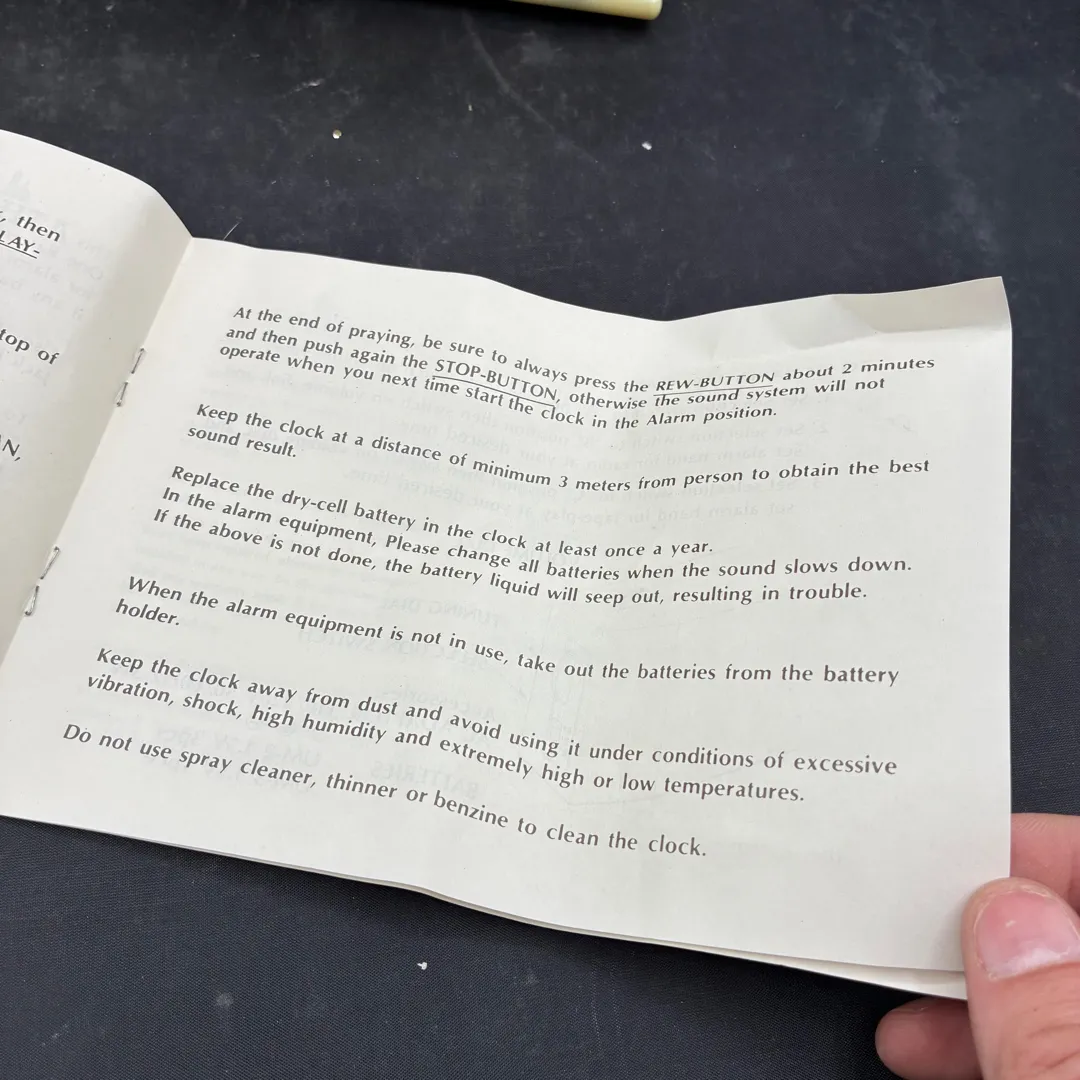 , then
LAY-
top of
N,
At the end of praying, be sure to always press the REW-BUTTON about 2 minutes
and then push again the STOP-BUTTON, otherwise the sound system will not
operate when you next time start the clock in the Alarm position.
Keep the clock at a distance of minimum 3 meters from person to obtain the best
sound result.
Replace the dry-cell battery in the clock at least once a year.
In the alarm equipment, Please change all batteries when the sound slows down.
If the above is not done, the battery liquid will seep out, resulting in trouble.
When the alarm equipment is not in use, take out the batteries from the battery
holder.
Keep the clock away from dust and avoid using it under conditions of excessive
vibration, shock, high humidity and extremely high or low temperatures.
Do not use spray cleaner, thinner or benzine to clean the clock.